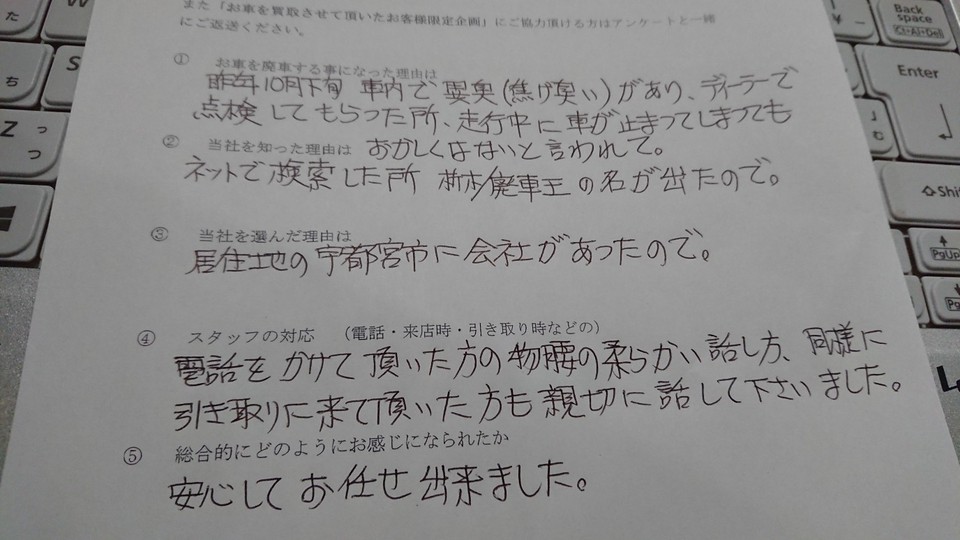 また「お車を買取させて頂いたお客様限定企画」にご協力頂ける方はアンケートと一緒
にご返送ください。
① お車を廃車する事になった理由は
昨年10月下旬 車内で異臭(焦げ臭い)があり、ディーラーで
点検してもらった所、走行中に車が止まってしまっても
おかしくはないと言われて。
② 当社を知った理由は
ネットで検索した所 栃木廃車王の名が出たので。
③ 当社を選んだ理由は
居住地の宇都宮市に会社があったので。
④ スタッフの対応 (電話・来店時・引き取り時などの)
電話をかけて頂いた方の物腰の柔らかい話し方、同様に
引き取りに来て頂いた方も親切に話して下さいました。
⑤ 総合的にどのようにお感じになられたか
安心してお任せ出来ました。
た
ち
Z っ
つ
S
W
Back
space
(Ct+Al+Del)
Enter
¥
む
Shif
PgUp
Pg